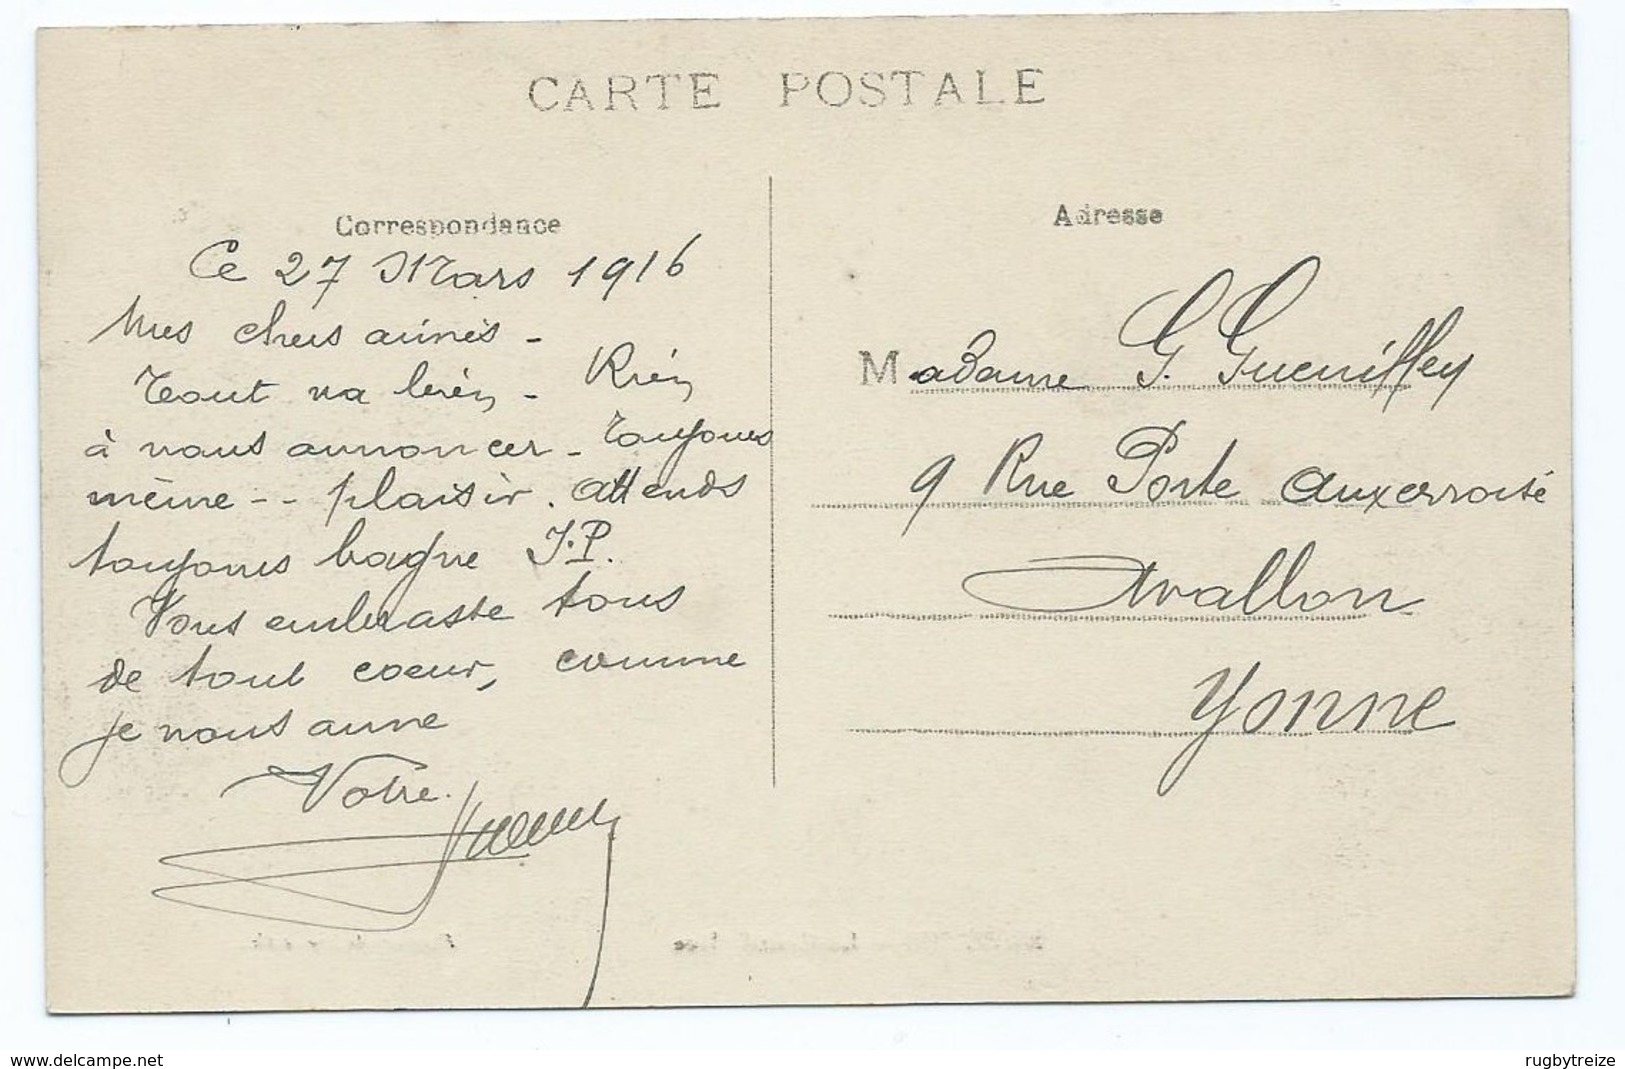 CARTE POSTALE
Correspondance
Ce 27 Mars 1916
Mes chers aimés -
Tout va bien - Rien
à vous annoncer - Toujours
même -- plaisir. Attends
toujours bague J.P.
Vous embrasse tous
de tout coeur, comme
je vous aime
Votre
Adresse
Madame G. Gueniffey
9 Rue Porte Auxerroise
Avallon
Yonne
www.delcampe.net
rugbytreize